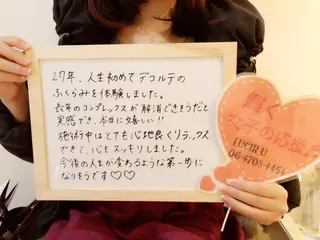 27年、人生初めてデコルテの
ふくらみを体験しました。
長年のコンプレックスが解消できそうだと
実感でき、本当に嬉しい!!
施術中はとても心地良くリラックス
できて、心もスッキリしました。
今後の人生が変わるような第一歩に
なりそうです♡♡
輝く
女子の応援団
LUCIR U
06-4708-4454